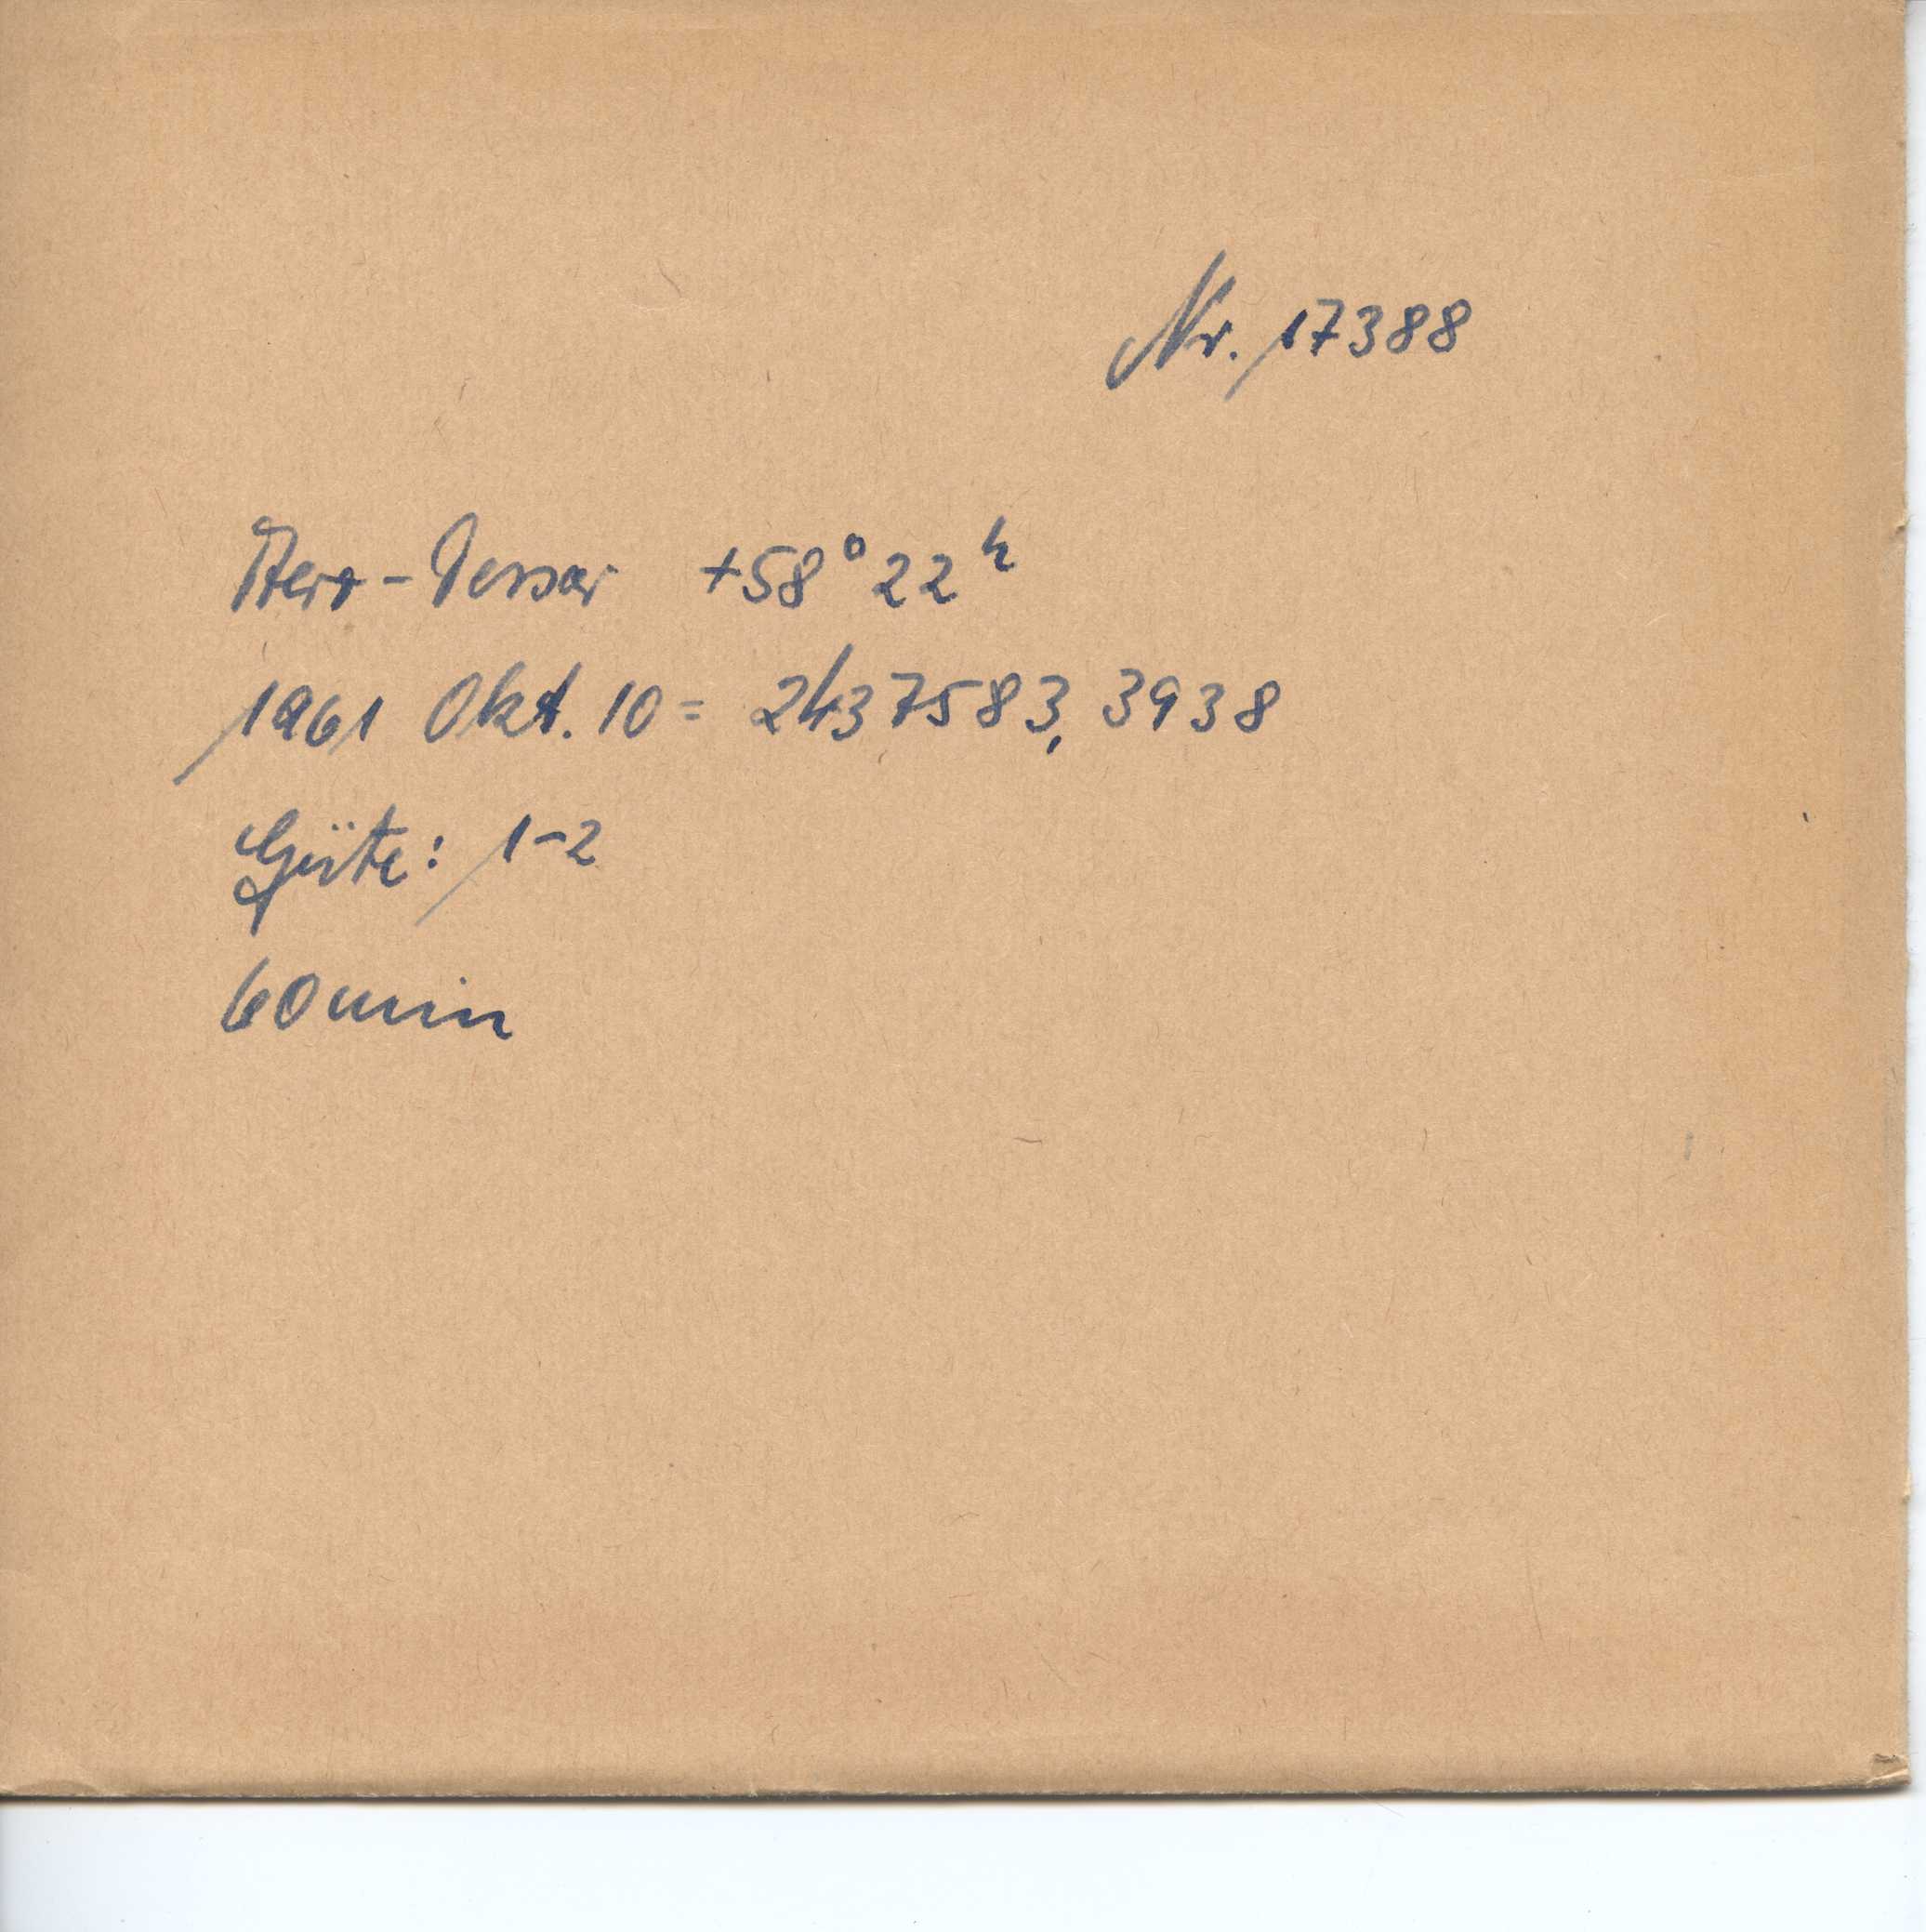 Nr. 17388
Aero-Tessar +58° 22ʰ
1961 Okt. 10 = 2437583,3938
Güte: 1-2
60 min